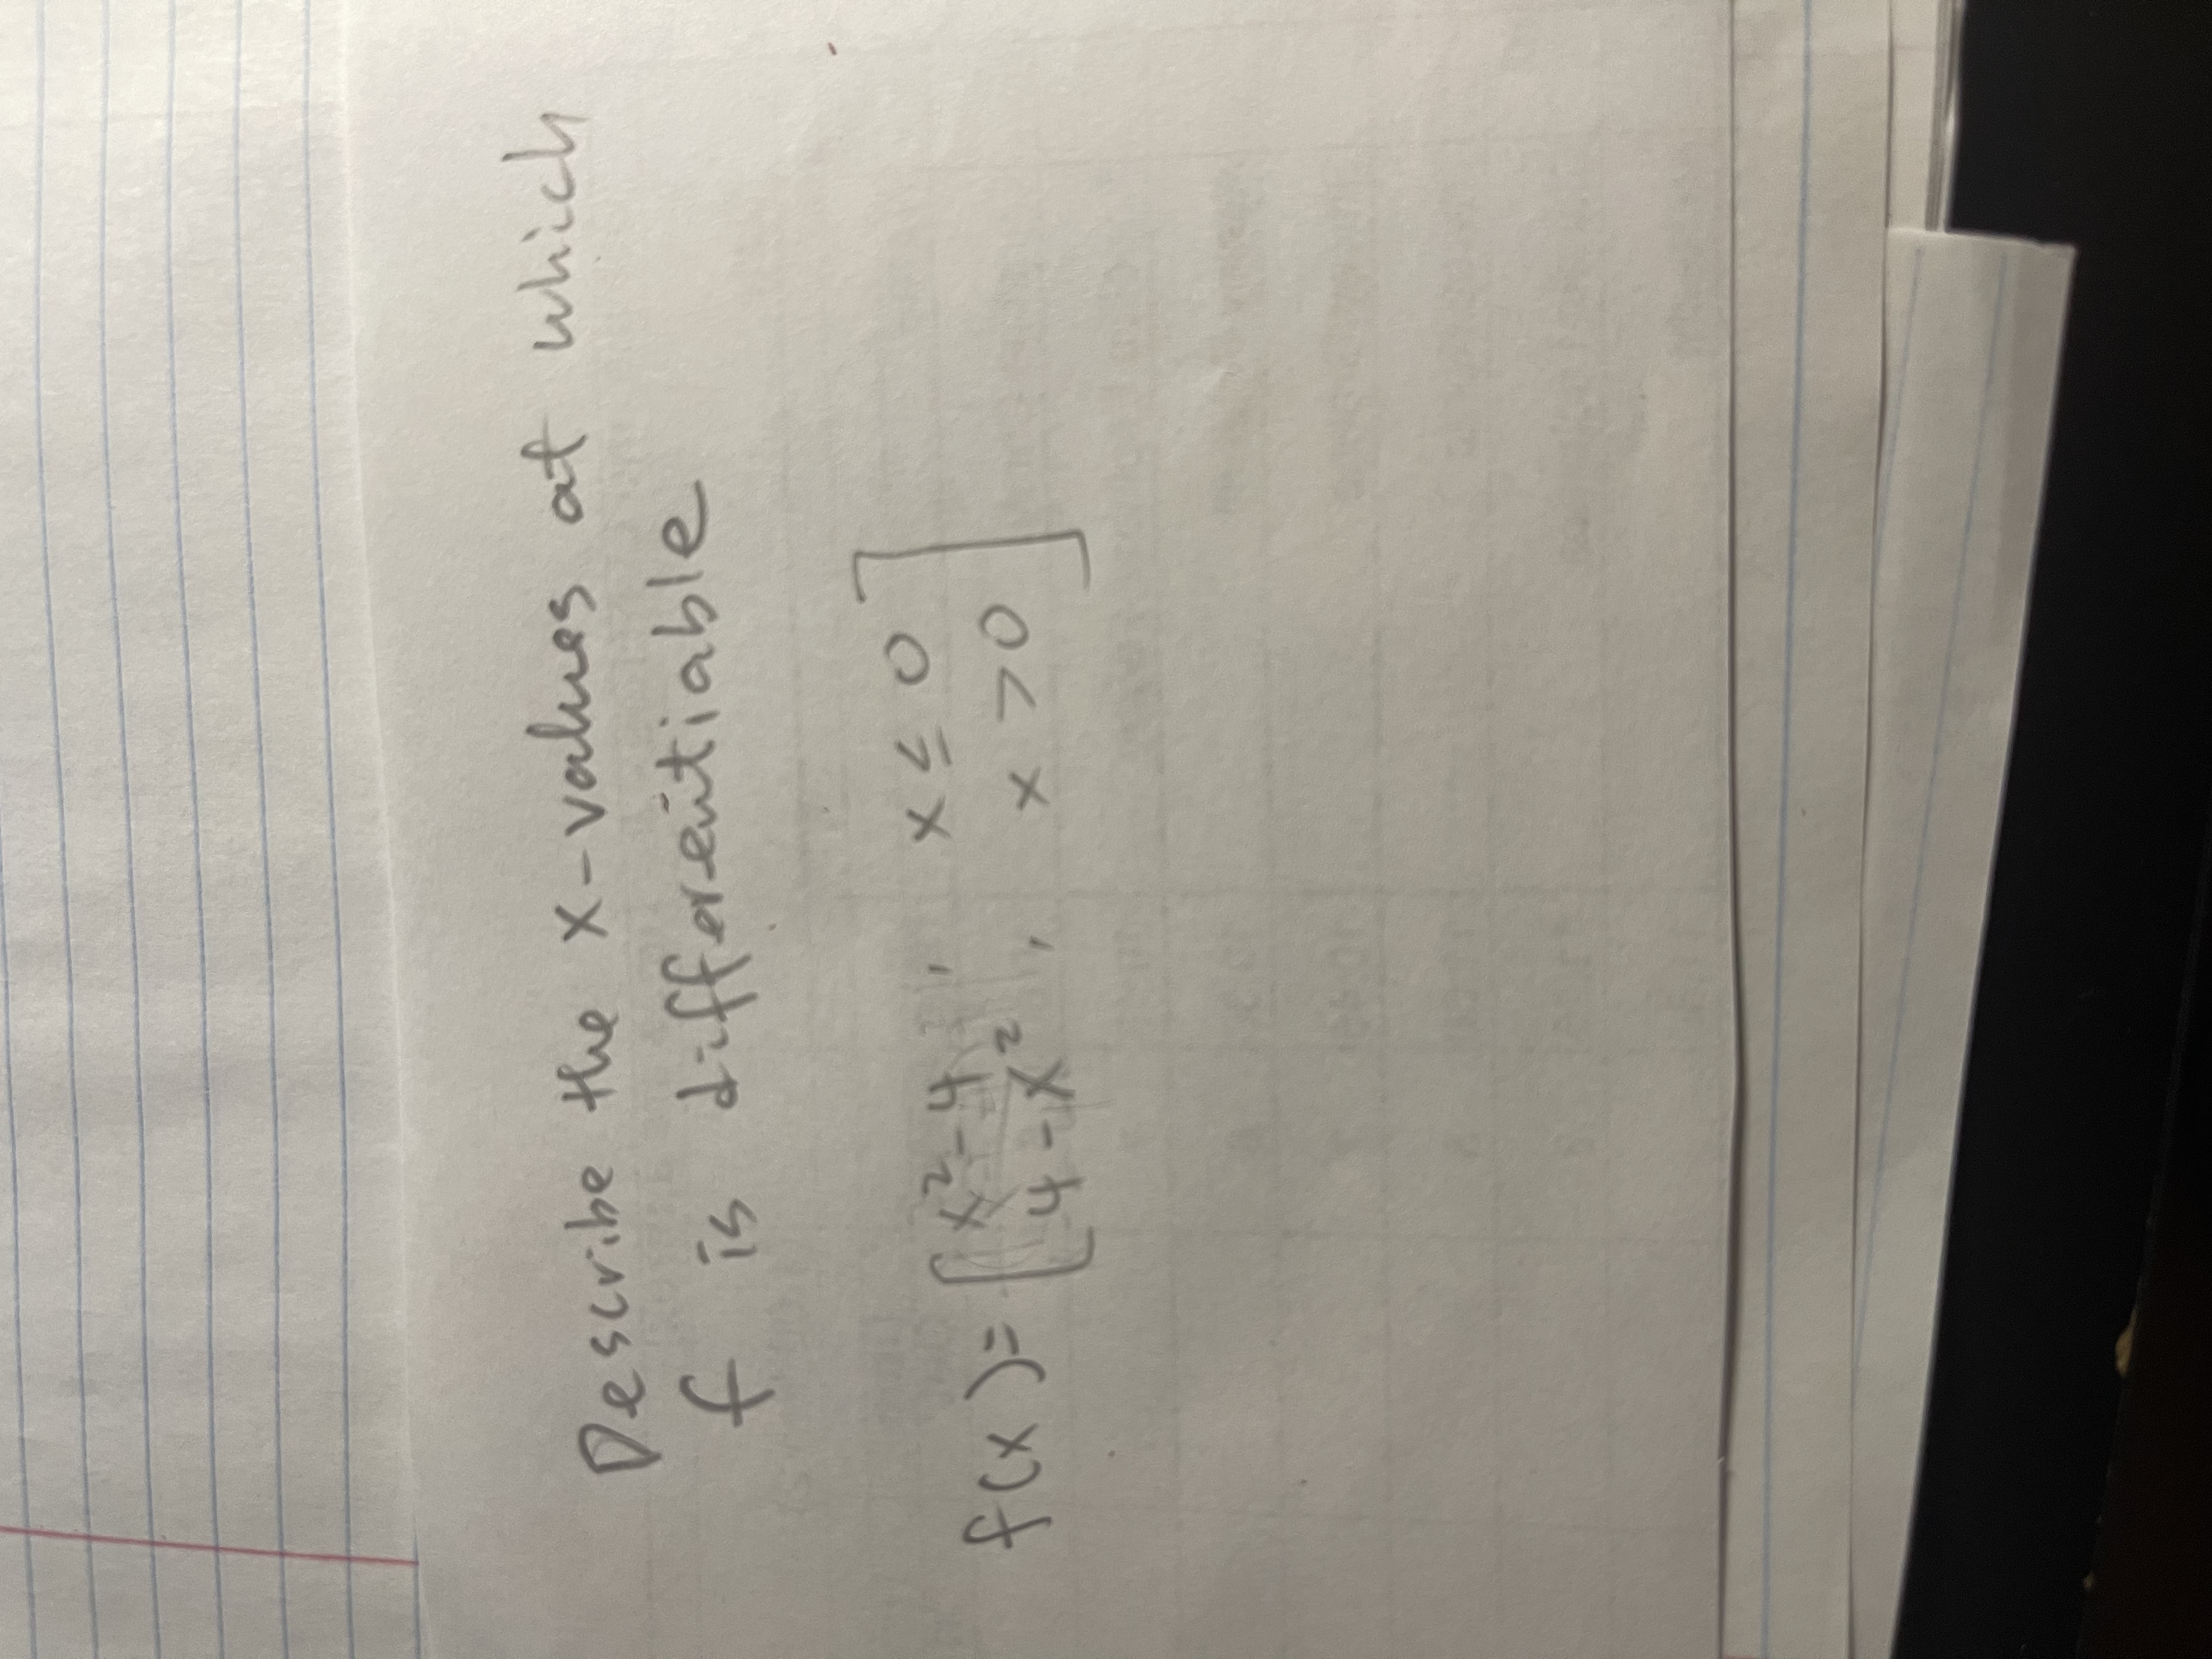 Describe the x-values at which
f is differentiable
f(x) = [x² - 4, x ≤ 0
4 - x², x > 0]